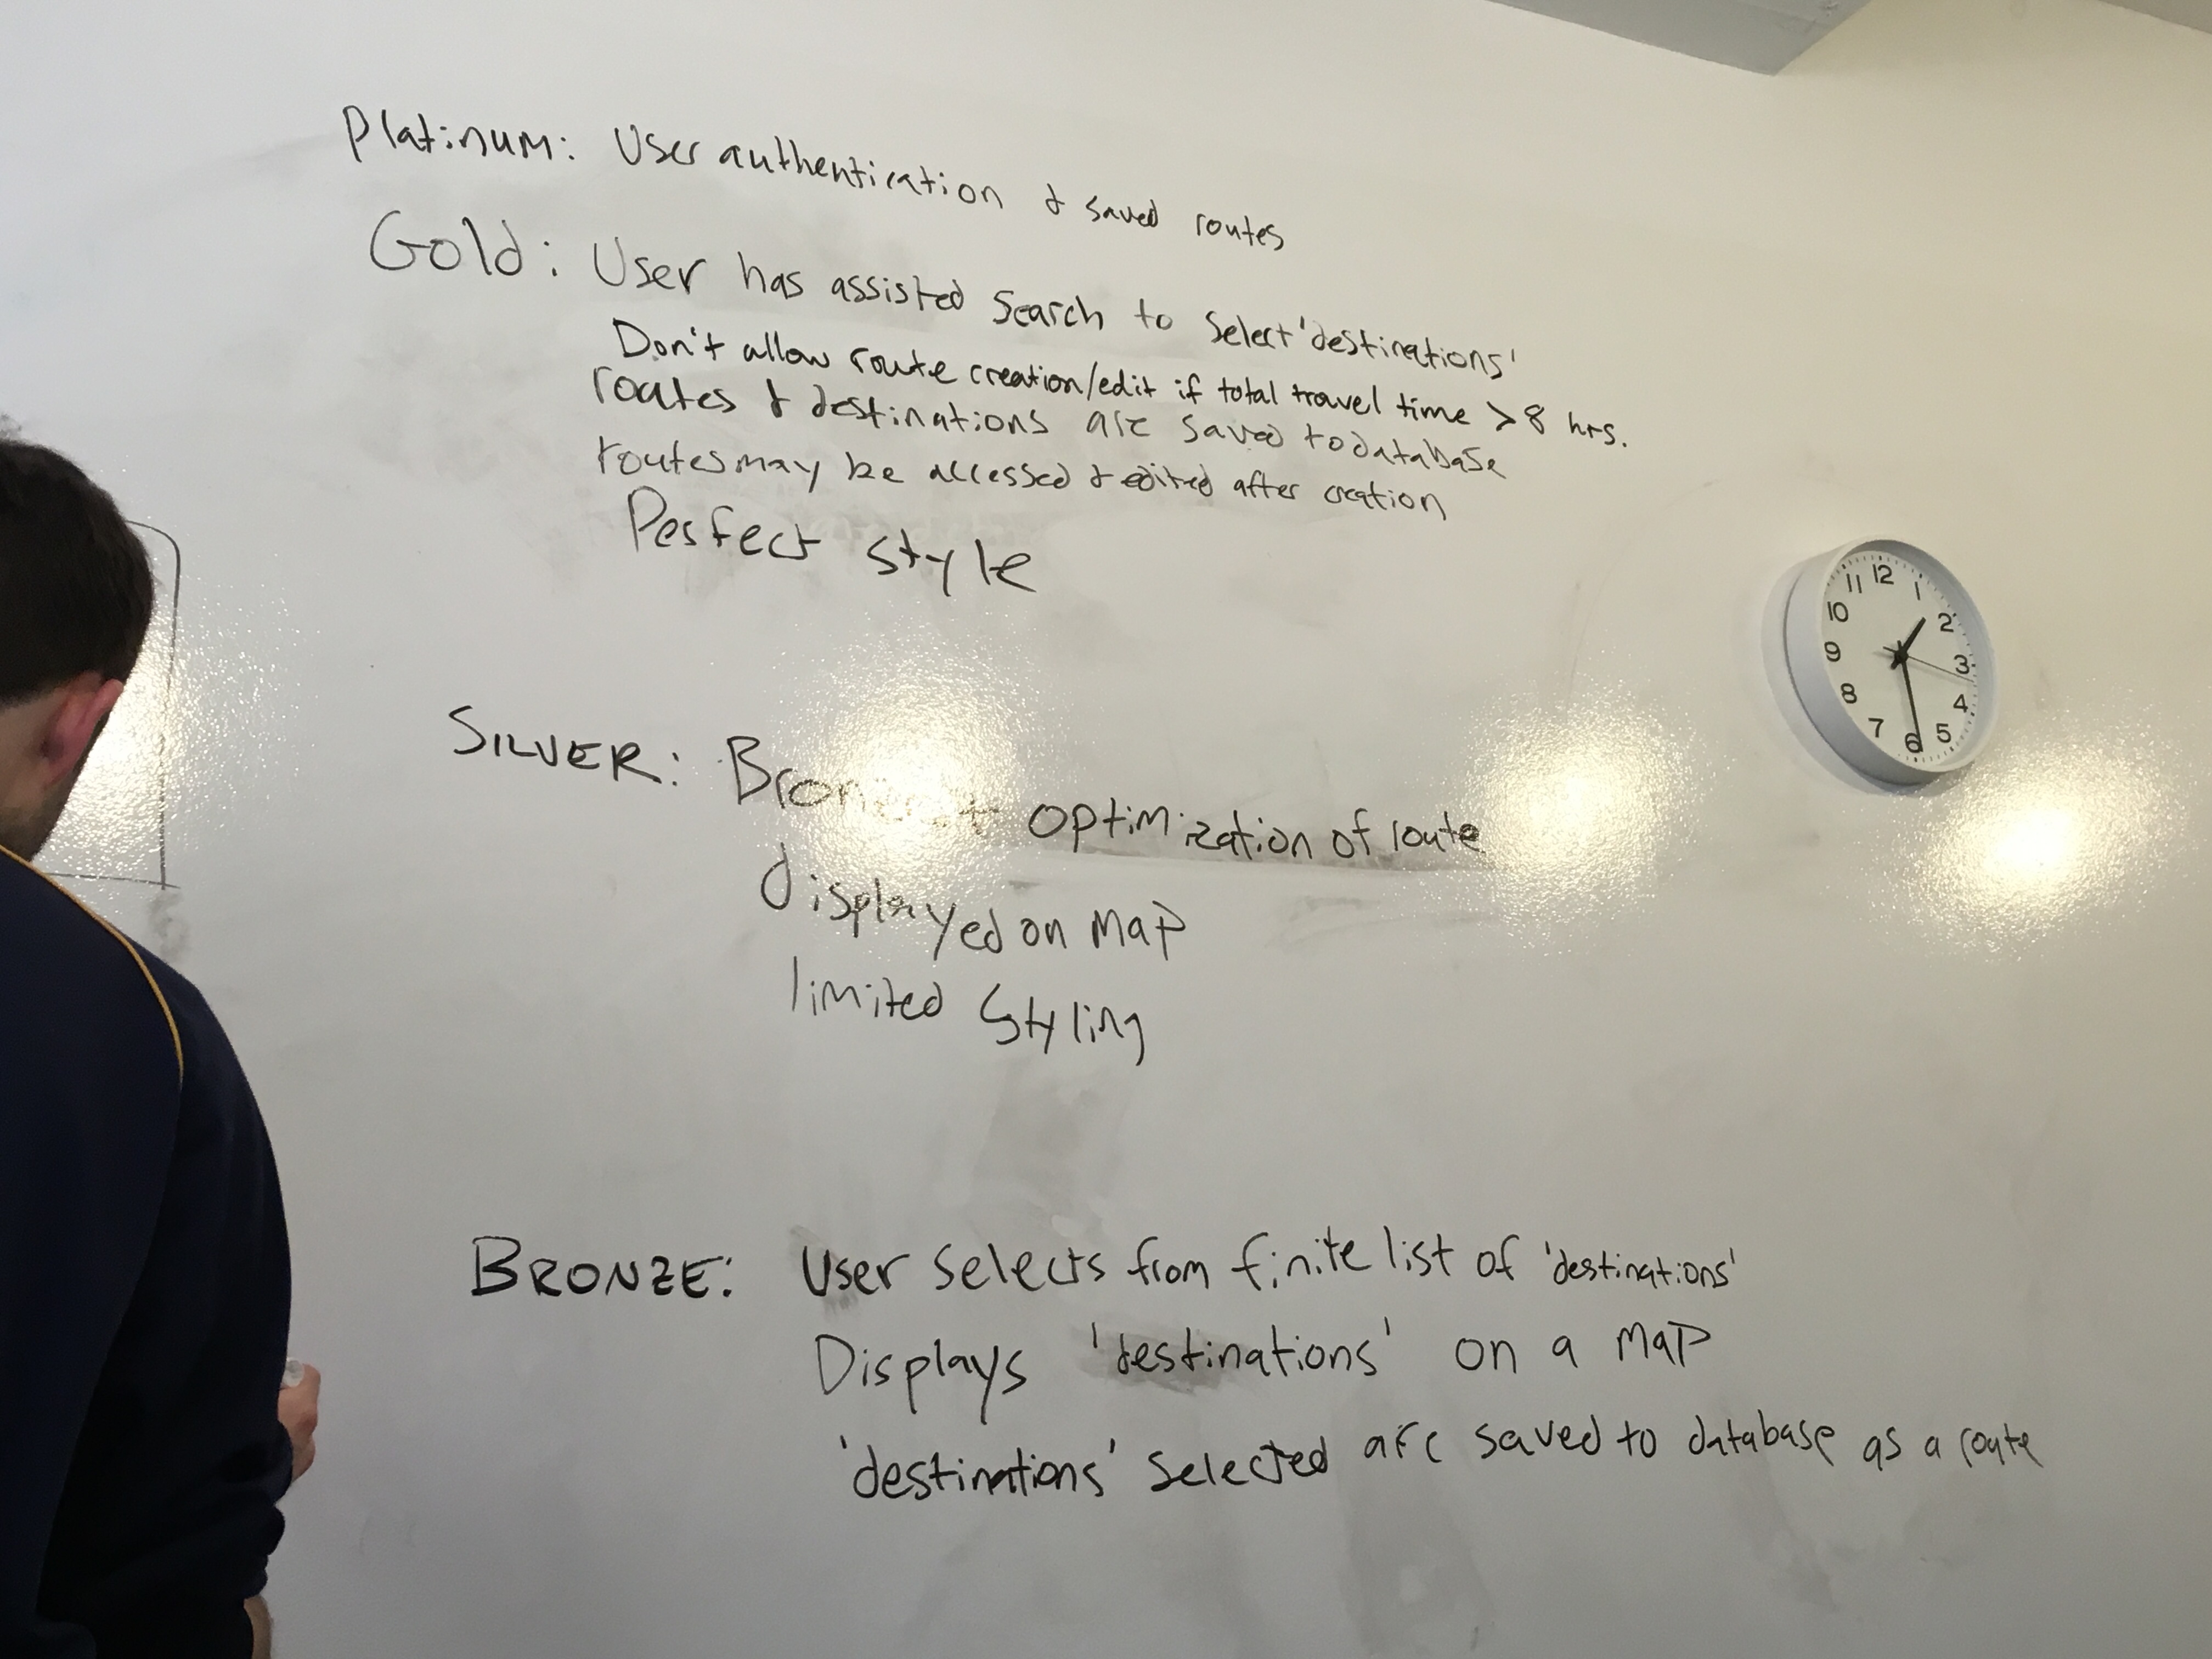 Platinum: User authentication & saved routes
Gold: User has assisted search to select 'destinations'
Don't allow route creation/edit if total travel time > 8 hrs.
routes & destinations are saved to database
routes may be accessed & edited after creation
Perfect style
SILVER: Bronze + optimization of route
displayed on map
limited styling
BRONZE: User selects from finite list of 'destinations'
Displays 'destinations' on a map
'destinations' selected are saved to database as a route
12
1
2
3
4
5
6
7
8
9
10
11